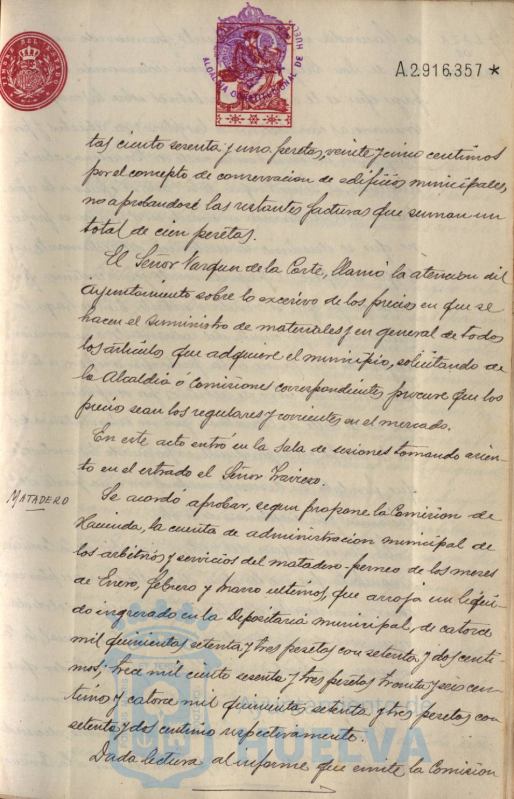 A.2.916,357 *
ALCALDIA CONSTITUCIONAL DE HUELVA
TIMBRE DEL ESTADO
tas ciento sesenta y una pesetas, veinte y cinco centimos
por el concepto de conservacion de edificios municipales,
no aprobandose las restantes facturas que suman un
total de cien pesetas.
El Señor Vazquez de la Corte, llamó la atencion del
Ayuntamiento sobre lo excesivo de los precios en que se
hacen el suministro de materiales y en general de todos
los articulos que adquiere el municipio, solicitando de
la Alcaldia ó Comisiones correspondientes procure que los
precios sean los regulares y corrientes en el mercado.
En este acto entró en la Sala de sesiones tomando asien-
to en el estrado el Señor Travieso.
MATADERO
Se acordó aprobar, segun propone la Comision de
Hacienda, la cuenta de administracion municipal de
los arbitrios y servicios del matadero-perneo de los meses
de Enero, febrero y Marzo ultimos, que arroja un liqui-
do ingresado en la Depositaria municipal, de catorce
mil quinientas setenta y tres pesetas con setenta y dos centi-
mos; trece mil ciento sesenta y tres pesetas treinta y seis cen-
timos y catorce mil quinientas setenta y tres pesetas con
setenta y dos centimos respectivamente.
Dada lectura al informe que emite la Comision
Ayuntamiento de
HUELVA